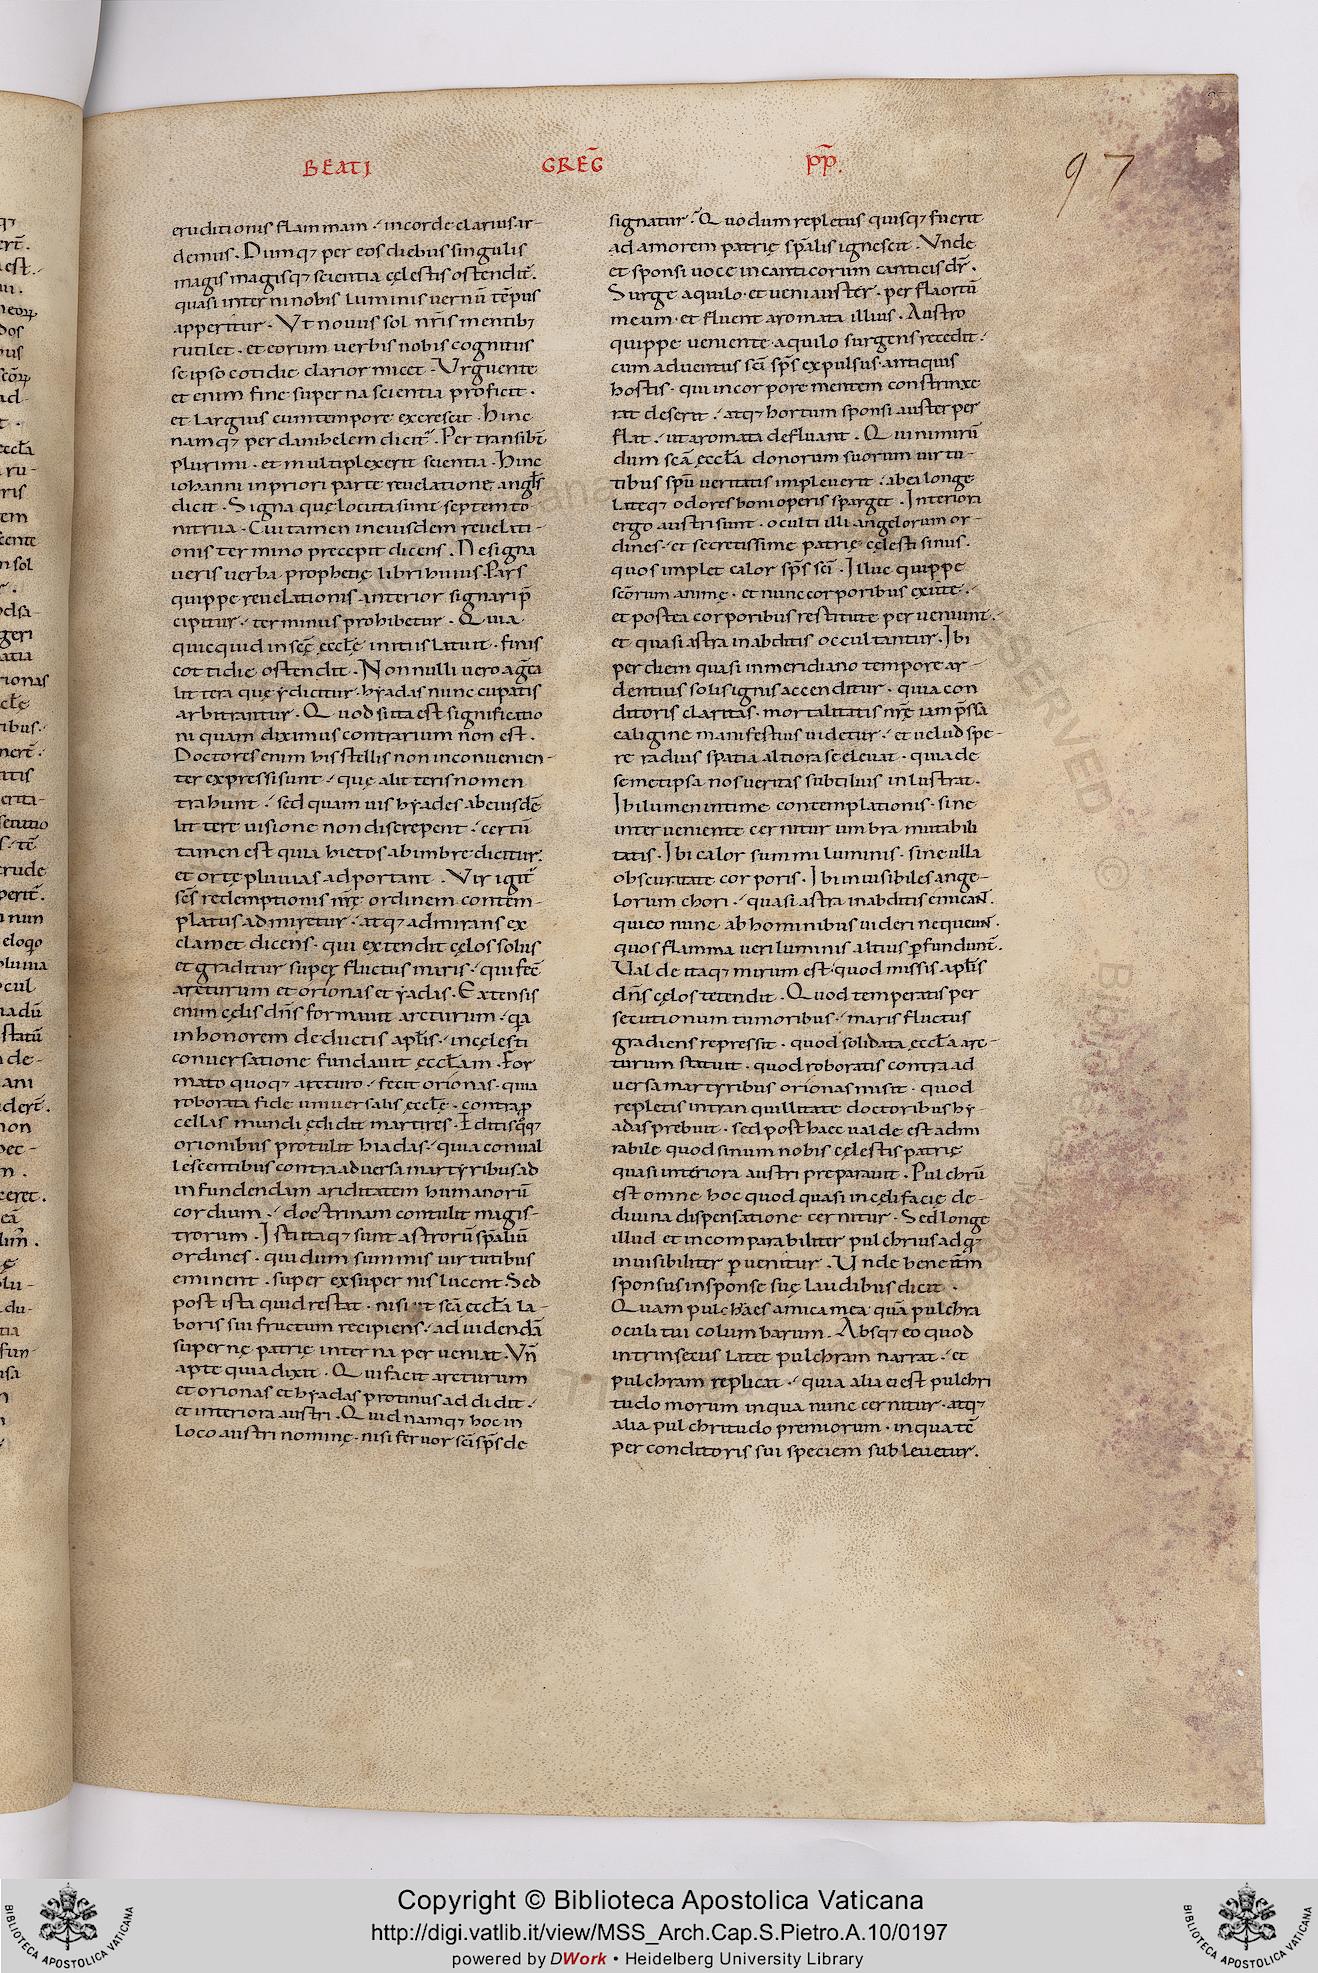 BEATI GREḠ PP̄.
97
eruditionis flammam·́ in corde clarius ar-
demus. Dumq; per eos diebus singulis
magis magisq; scientia cęlestis ostendit̄.
quasi interni nobis luminis vernū tēpus
apperitur. Vt novus sol nr̄is mentib;
rutilet. et eorum verbis nobis cognitus
se ipso cotidie clarior micet. Vrguente
et enim fine superna scientia proficit.
et largius cum tempore excrescit. Hinc
namq; per danihelem dicit̄. Per transibt̄
plurimi. et multiplex erit scientia. Hinc
iohanni in priori parte revelatione angl̄s
dicit. Signa quę locuta sunt septem to-
nitrua. Cui tamen in eiusdem revelati-
onis termino precepit dicens. Ne signa
veris verba prophetię libri huius. Pars
quippe revelationis anterior signari p̄
cipitur·́ terminus prohibetur. Quia
quicquid in sc̄ę eccl̄ę initiis latuit. finis
cottidie ostendit. Nonnulli vero a gr̄ca
littera quę ẏ dicitur. hẏadas nuncupatis
arbitrantur. Quod si ita est significatio
ni quam diximus contrarium non est.
Doctores enim his stellis non inconvenien-
ter expressi sunt·́ quę a litteris nomen
trahunt·́ sed quam vis hẏades ab eiusdē
littere visione non discrepent·́ certū
tamen est quia hietos ab imbre dicitur.
et ortę pluvias adportant. Vir igit̄
sc̄s redemptionis nr̄ę ordinem contem-
platus admiretur·́ atq; admirans ex
clamet dicens. qui extendit cęlos solus
et graditur super fluctus maris·́ qui fec̄
arcturum et orionas et ẏadas. Extensis
enim cęlis dn̄s formavit arcturum·́ q̄a
in honorem deductis apl̄is·́ in cęlesti
conversatione fundavit eccl̄am. For
mato quoq; arcturo·́ fecit orionas. quia
roborata fide universalis eccl̄ę. contra p̱
cellas mundi ędidit martires. Editisq̄q;
orionibus protulit hiadas·́ quia conval
lescentibus contra adversa martẏribus ad
infundendam ariditatem humanorū
cordium·́ doctrinam contulit magis-
trorum. Isti itaq; sunt astrorū sp̄aliū
ordines. qui dum summis virtutibus
eminent. super ex supernis lucent. Sed
post ista quid restat. nisi ut sc̄a eccl̄a la-
boris sui fructum recipiens·́ ad videndā
supernę patrię interna perveniat. Vn̄
apte quia dixit. Qui facit arcturum
et orionas et hẏadas protinus addidit·́
et interiora austri. Quid namq; hoc in
loco austri nominę. nisi fervor sc̄i sp̄s de
signatur·́ Quo dum repletus quisq; fuerit
ad amorem patrię sp̄alis ignescit. Vnde
et sponsi voce in canticorum canticis dr̄.
Surge aquilo. et veni auster. perfla ortū
meum. et fluent aromata illius. Austro
quippe veniente aquilo surgens recedit·́
cum adventus sc̄i sp̄s expulsus antiquis
hostis. qui in corpore mentem constrinxe
rat deserit·́ atq; hortum sponsi auster per
flat·́ ut aromata defluant. Qui nimirū
dum sc̄ā eccl̄ā donorum suorum vir tu-
tibus sp̄u veritatis impleverit·́ ab ea longe
lateq; odores boni operis sparget. Interiora
ergo austri sunt. occulti illi angelorum or-
dines·́ et secretissime patrię cęlesti sinus.
quos implet calor sp̄s sc̄i. Illuc quippe
sc̄orum animę. et nunc corporibus exūte·́
et postea corporibus restitute perveniunt·́
et quasi astra in abditis occultantur. Ibi
per diem quasi in meridiano tempore ar-
dentius solis ignis accenditur. quia con
ditoris claritas. mortalitatis nr̄ę iam p̄ssa
caligine manifestius videtur·́ et velud spe-
re radius spatia altiora se elevat. quia de
semetipsa nos veritas subtilius inlustrat.
Ibi lumen intime contemplationis. sine
interveniente cernitur umbra mutabili
tatis. Ibi calor summi luminis. sine ulla
obscuritate corporis. Ibi invisibiles ange-
lorum chori·́ quasi astra in abditis emicant̄.
qui eo nunc ab hominibus videri nequeunt̄.
quos flamma veri luminis altius p̱fundunt̄.
Valde itaq; mirum est. quod missis apl̄is
dn̄s cęlos tetendit. Quod temperatis per
secutionum tumoribus·́ maris fluctus
gradiens repressit. quod solidata eccl̄a arc-
turum statuit. quod roboratis contra ad
versa martyribus orionas misit. quod
repletis in tranquillitate doctoribus hẏ-
adas prebuit. sed post haec valde est admi
rabile quod sinum nobis cęlestis patrię
quasi interiora austri preparavit. Pulchrū
est omne hoc quod quasi in cęli facię de-
divina dispensatione cernitur. Sed longe
illud et incomparabiliter pulchrius ad q̄;
invisibiliter p̱venitur. Unde bene itm̄
sponsus in sponse suę laudibus dicit.
Quam pulchra es amica mea quā pulchra
oculi tui columbarum. Absq; eo quod
intrinsecus latet pulchram narrat·́ et
pulchram replicat·́ quia alia ei est pulchri
tudo morum in qua nunc cernitur. atq;
alia pulchritudo premiorum. in qua tē
per conditoris sui speciem sublevetur.
Copyright © Biblioteca Apostolica Vaticana
http://digi.vatlib.it/view/MSS_Arch.Cap.S.Pietro.A.10/0197
powered by DWork • Heidelberg University Library
BIBLIOTECA APOSTOLICA VATICANA
BIBLIOTECA APOSTOLICA VATICANA